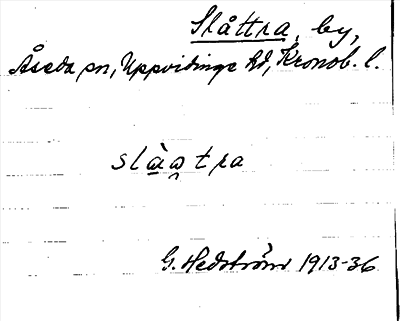 Slåttra, by,
Åseda sn, Uppvidinge hd, Kronob. l.
slàa̯tra
G. Hedström 1913-36